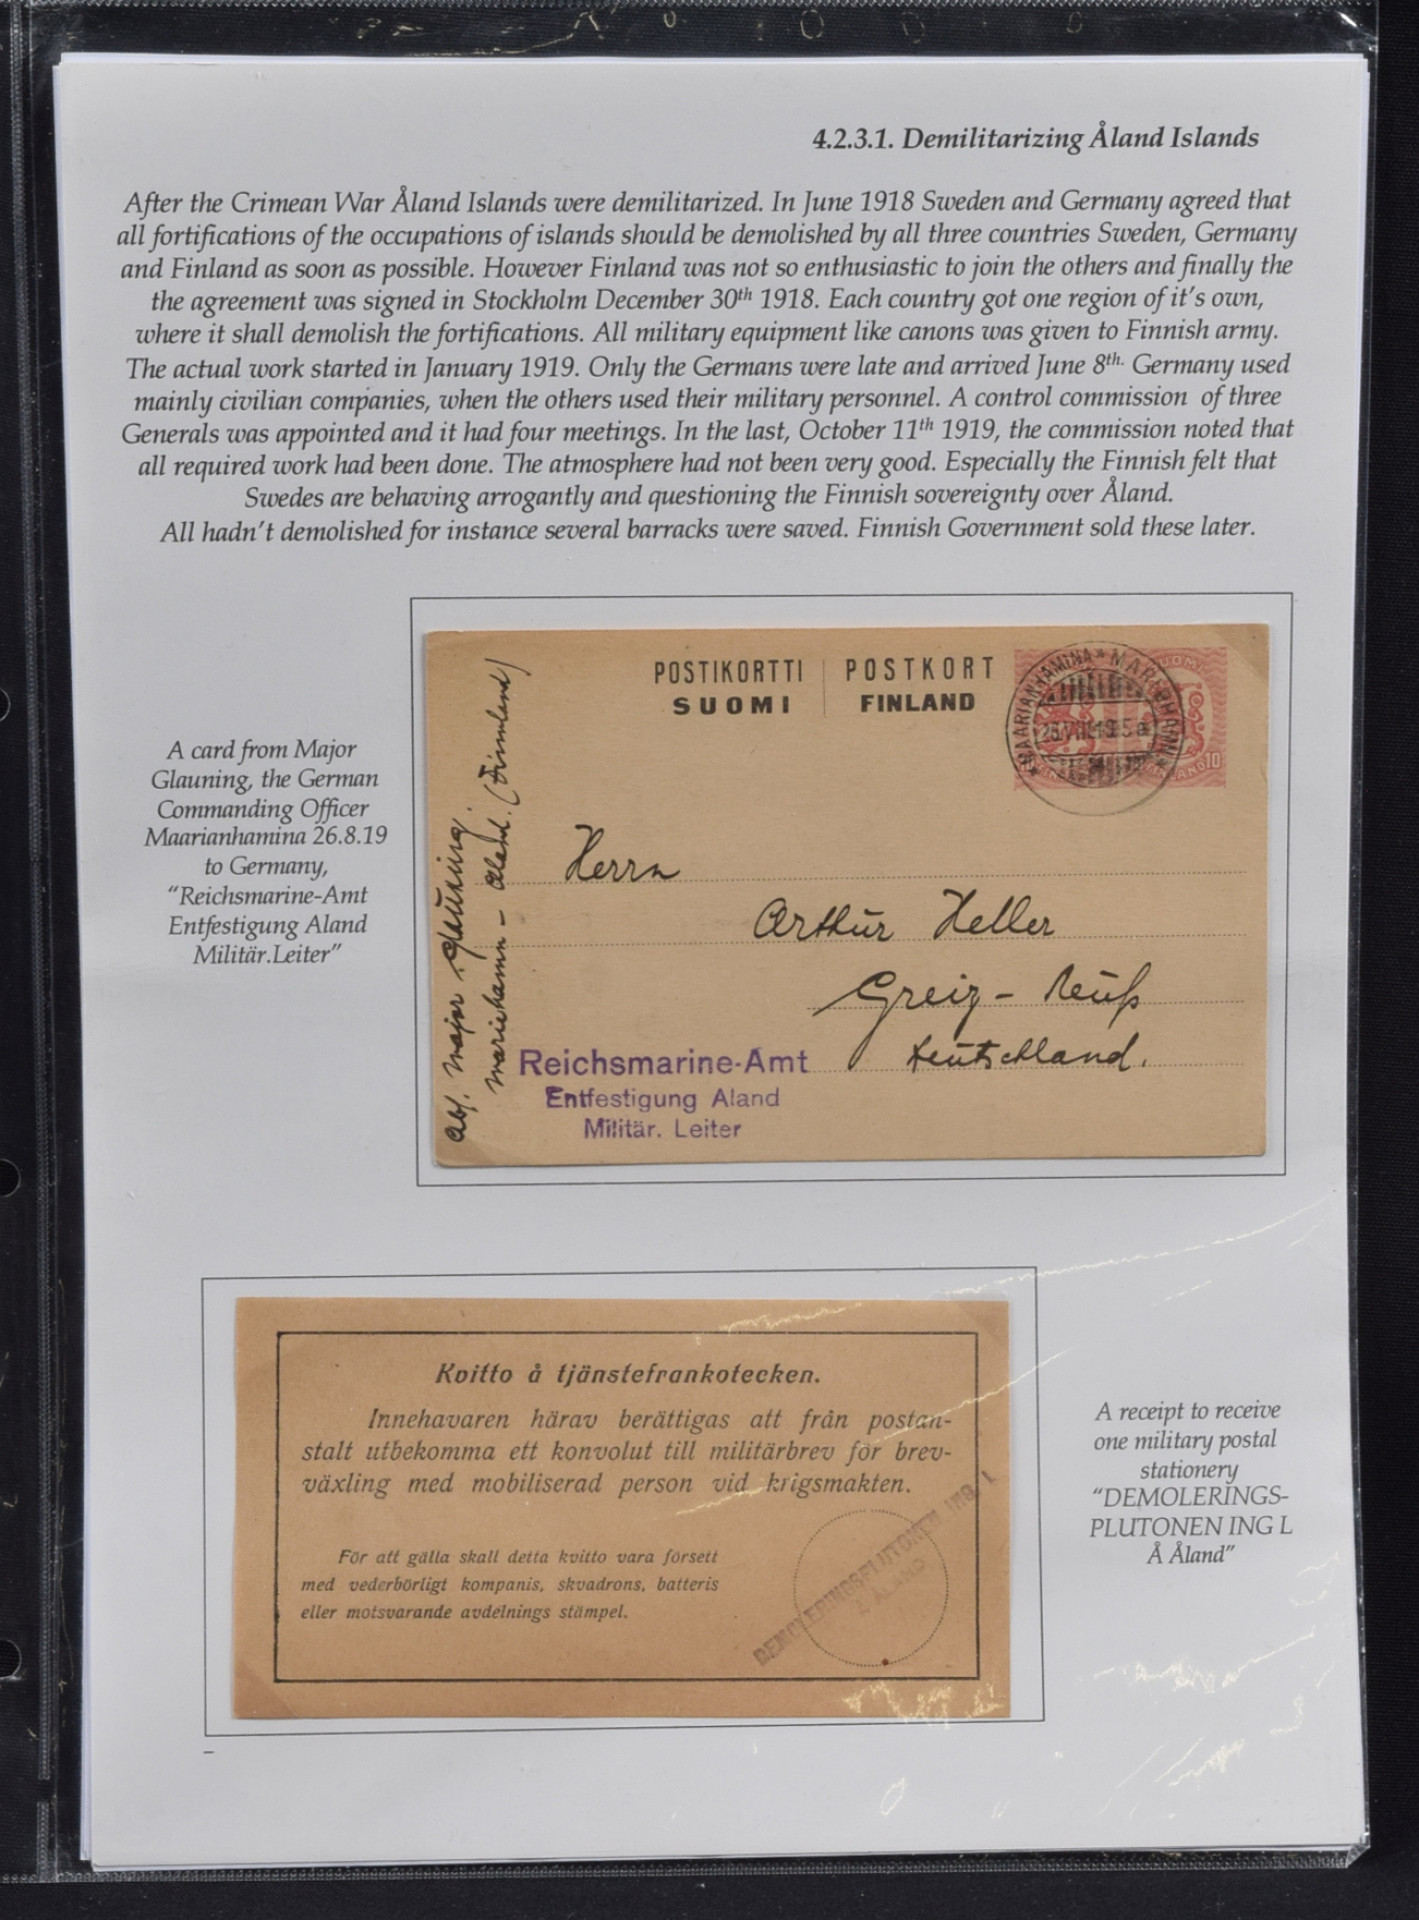 4.2.3.1. Demilitarizing Åland Islands
After the Crimean War Åland Islands were demilitarized. In June 1918 Sweden and Germany agreed that
all fortifications of the occupations of islands should be demolished by all three countries Sweden, Germany
and Finland as soon as possible. However Finland was not so enthusiastic to join the others and finally the
the agreement was signed in Stockholm December 30th 1918. Each country got one region of it's own,
where it shall demolish the fortifications. All military equipment like canons was given to Finnish army.
The actual work started in January 1919. Only the Germans were late and arrived June 8th. Germany used
mainly civilian companies, when the others used their military personnel. A control commission of three
Generals was appointed and it had four meetings. In the last, October 11th 1919, the commission noted that
all required work had been done. The atmosphere had not been very good. Especially the Finnish felt that
Swedes are behaving arrogantly and questioning the Finnish sovereignty over Åland.
All hadn't demolished for instance several barracks were saved. Finnish Government sold these later.
A card from Major
Glauning, the German
Commanding Officer
Maarianhamina 26.8.19
to Germany,
"Reichsmarine-Amt
Entfestigung Aland
Militär.Leiter"
POSTIKORTTI POSTKORT
SUOMI FINLAND
MAARIANHAMINA * MARIEHAMN *
SUOMI
10
Herrn
Arthur Heller
Greiz - Reuß
Deutschland.
Abs. Major Glauning.
Mariehamn - Aland. (Finnland)
Reichsmarine-Amt
Entfestigung Aland
Militär. Leiter
Kvitto å tjänstefrankotecken.
Innehavaren härav berättigas att från postan-
stalt utbekomma ett konvolut till militärbrev för brev-
växling med mobiliserad person vid krigsmakten.
För att gälla skall detta kvitto vara försett
med vederbörligt kompanis, skvadrons, batteris
eller motsvarande avdelnings stämpel.
DEMOLERINGSPLUTONEN ING. L
Å ÅLAND
A receipt to receive
one military postal
stationery
"DEMOLERINGS-
PLUTONEN ING L
Å Åland"